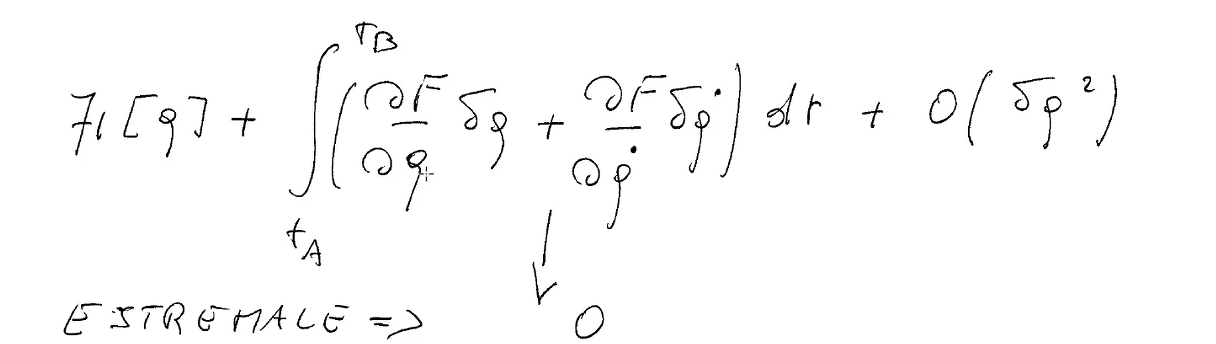 ℱ[q] + ∫_{t_A}^{t_B} (∂F/∂q δq + ∂F/∂q̇ δq̇) dt + O(δq²)
↓
ESTREMALE => 0